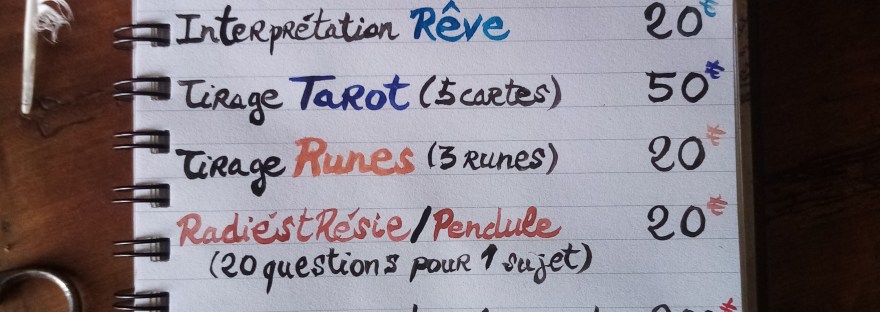 Interprétation Rêve 20€
Tirage Tarot (5 cartes) 50€
Tirage Runes (3 runes) 20€
RadiéstRésie/Pendule 20€
(20 questions pour 1 sujet)